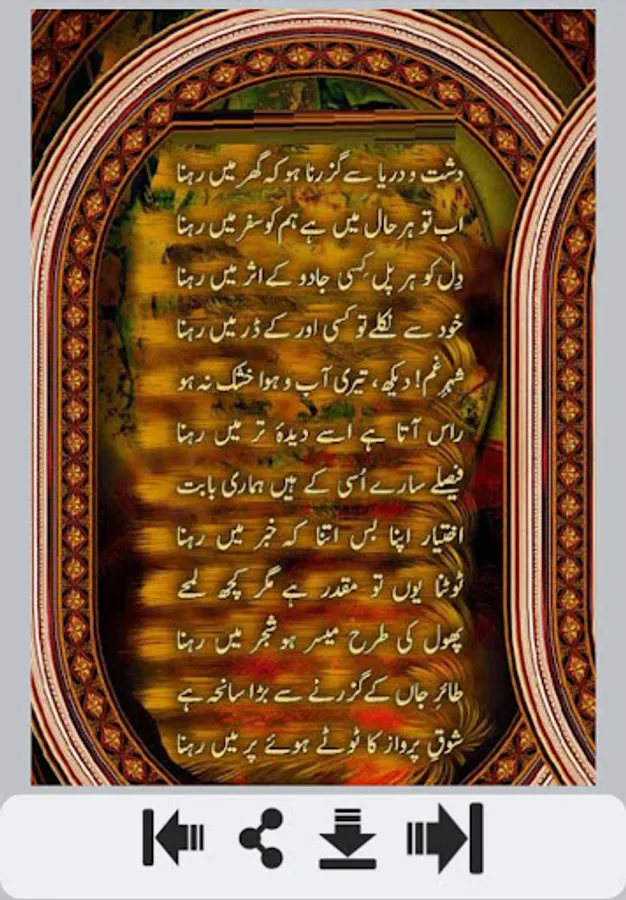 دشت و دریا سے گزرنا ہو کہ گھر میں رہنا
اب تو ہر حال میں ہے ہم کو سفر میں رہنا
دِل کو ہر پل کِسی جادو کے اثر میں رہنا
خود سے نکلے تو کسی اور کے ڈر میں رہنا
شہرِ غم! دیکھ، تیری آب و ہوا خشک نہ ہو
راس آتا ہے اسے دیدۂ تر میں رہنا
فیصلے سارے اُسی کے ہیں ہماری بابت
اختیار اپنا بس اتنا کہ خبر میں رہنا
ٹوٹنا یوں تو مقدر ہے مگر کچھ لمحے
پھول کی طرح میسر ہو شجر میں رہنا
طائرِ جاں کے گزرنے سے بڑا سانحہ ہے
شوقِ پرواز کا ٹوٹے ہوئے پر میں رہنا